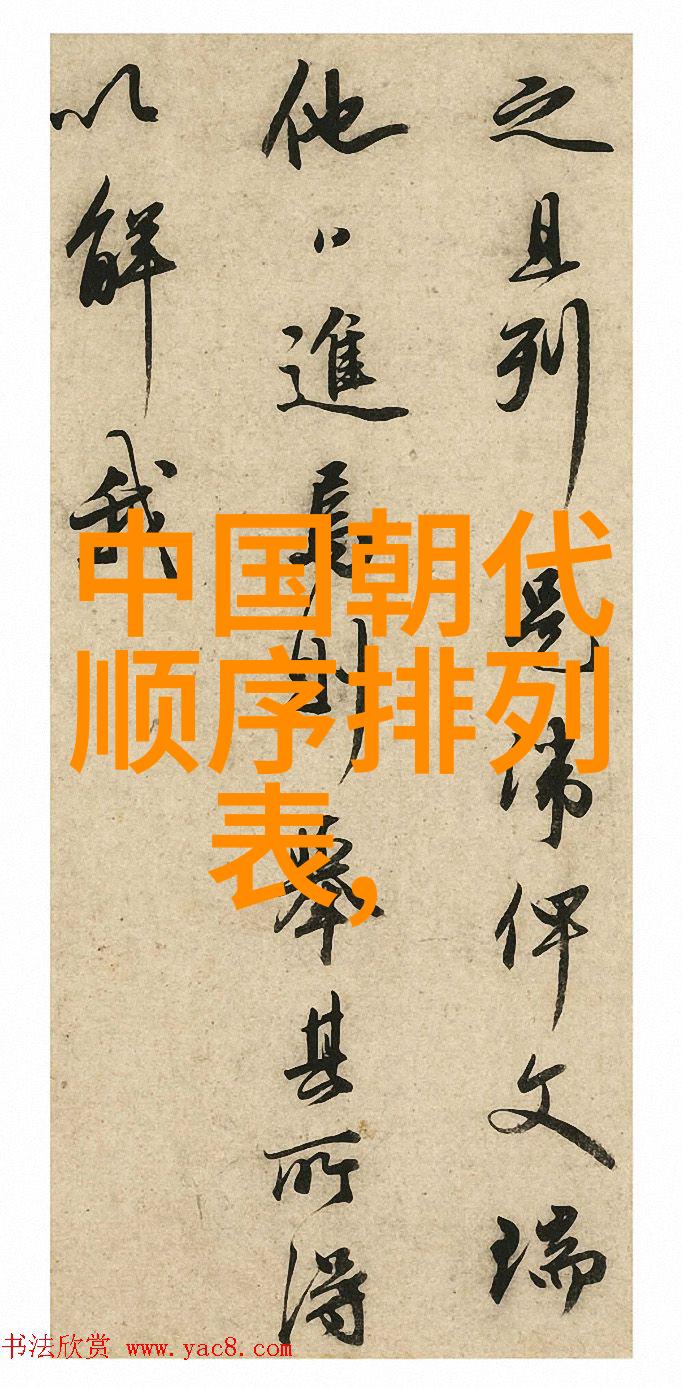 之且列俾文瑞
他進則舉其所得
以解我
中国朝代
顺序排列
表,
书法欣赏 www.yac8.com